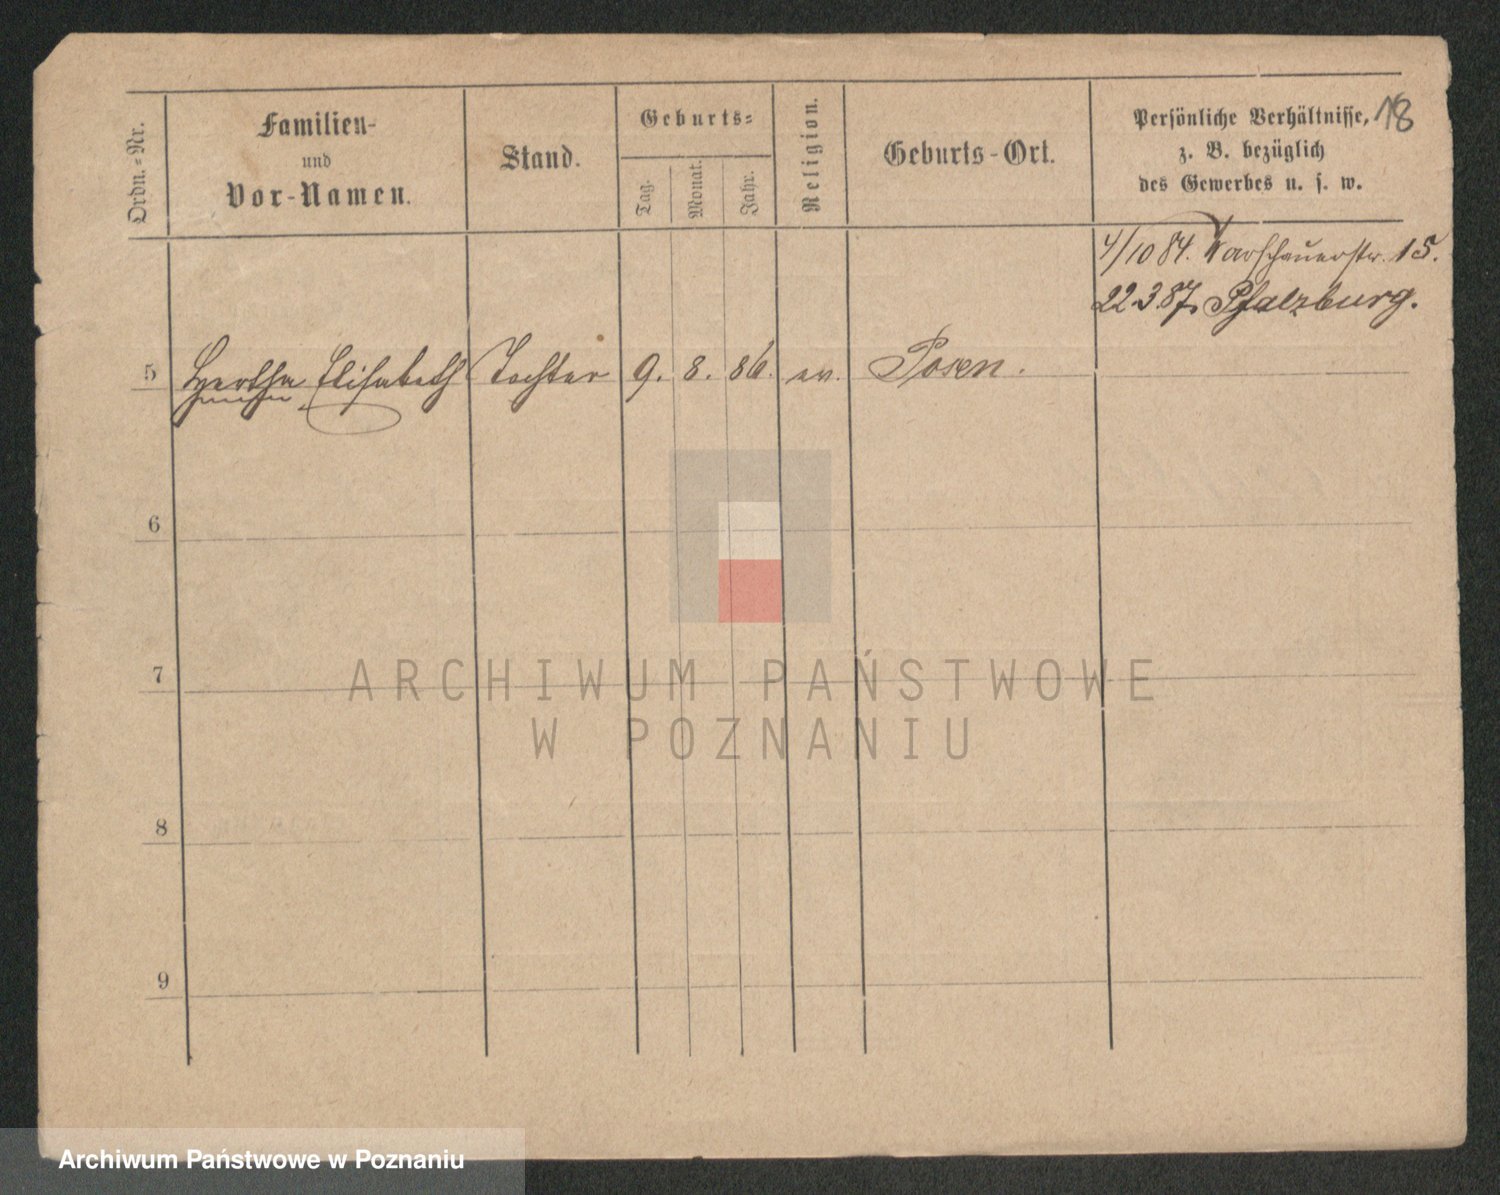 18
Ordn.-Nr.
Familien-
und
Vor-Namen.
Stand.
Geburts-
Tag.
Monat.
Jahr.
Religion.
Geburts-Ort.
Persönliche Verhältnisse,
z. B. bezüglich
des Gewerbes u. s. w.
4/10 84. Warschauerstr. 15.
22.3 87. Pfalzburg.
5 Hertha Elisabeth Tochter 9. 8. 86. ev. Posen.
6
7
ARCHIWUM PAŃSTWOWE
W POZNANIU
8
9
Archiwum Państwowe w Poznaniu